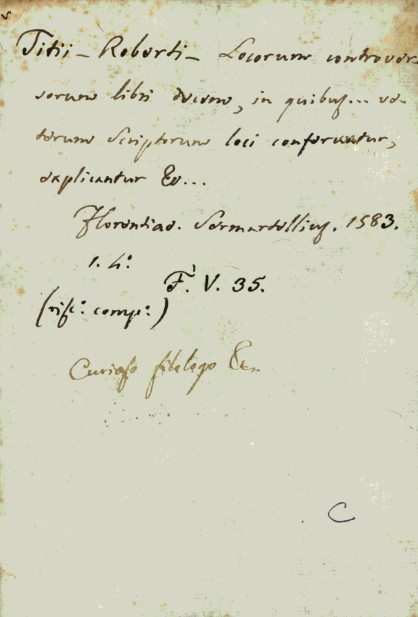 Titii - Roberti - Locorum controver-
sorum libri decem, in quibus... ve-
terum Scriptorum loci conferuntur,
explicantur &c...
Florentiae. Sermartellius. 1583.
1. 4.º
F. V. 35.
(risc.º comp.º)
Curioso filologo &c.
C